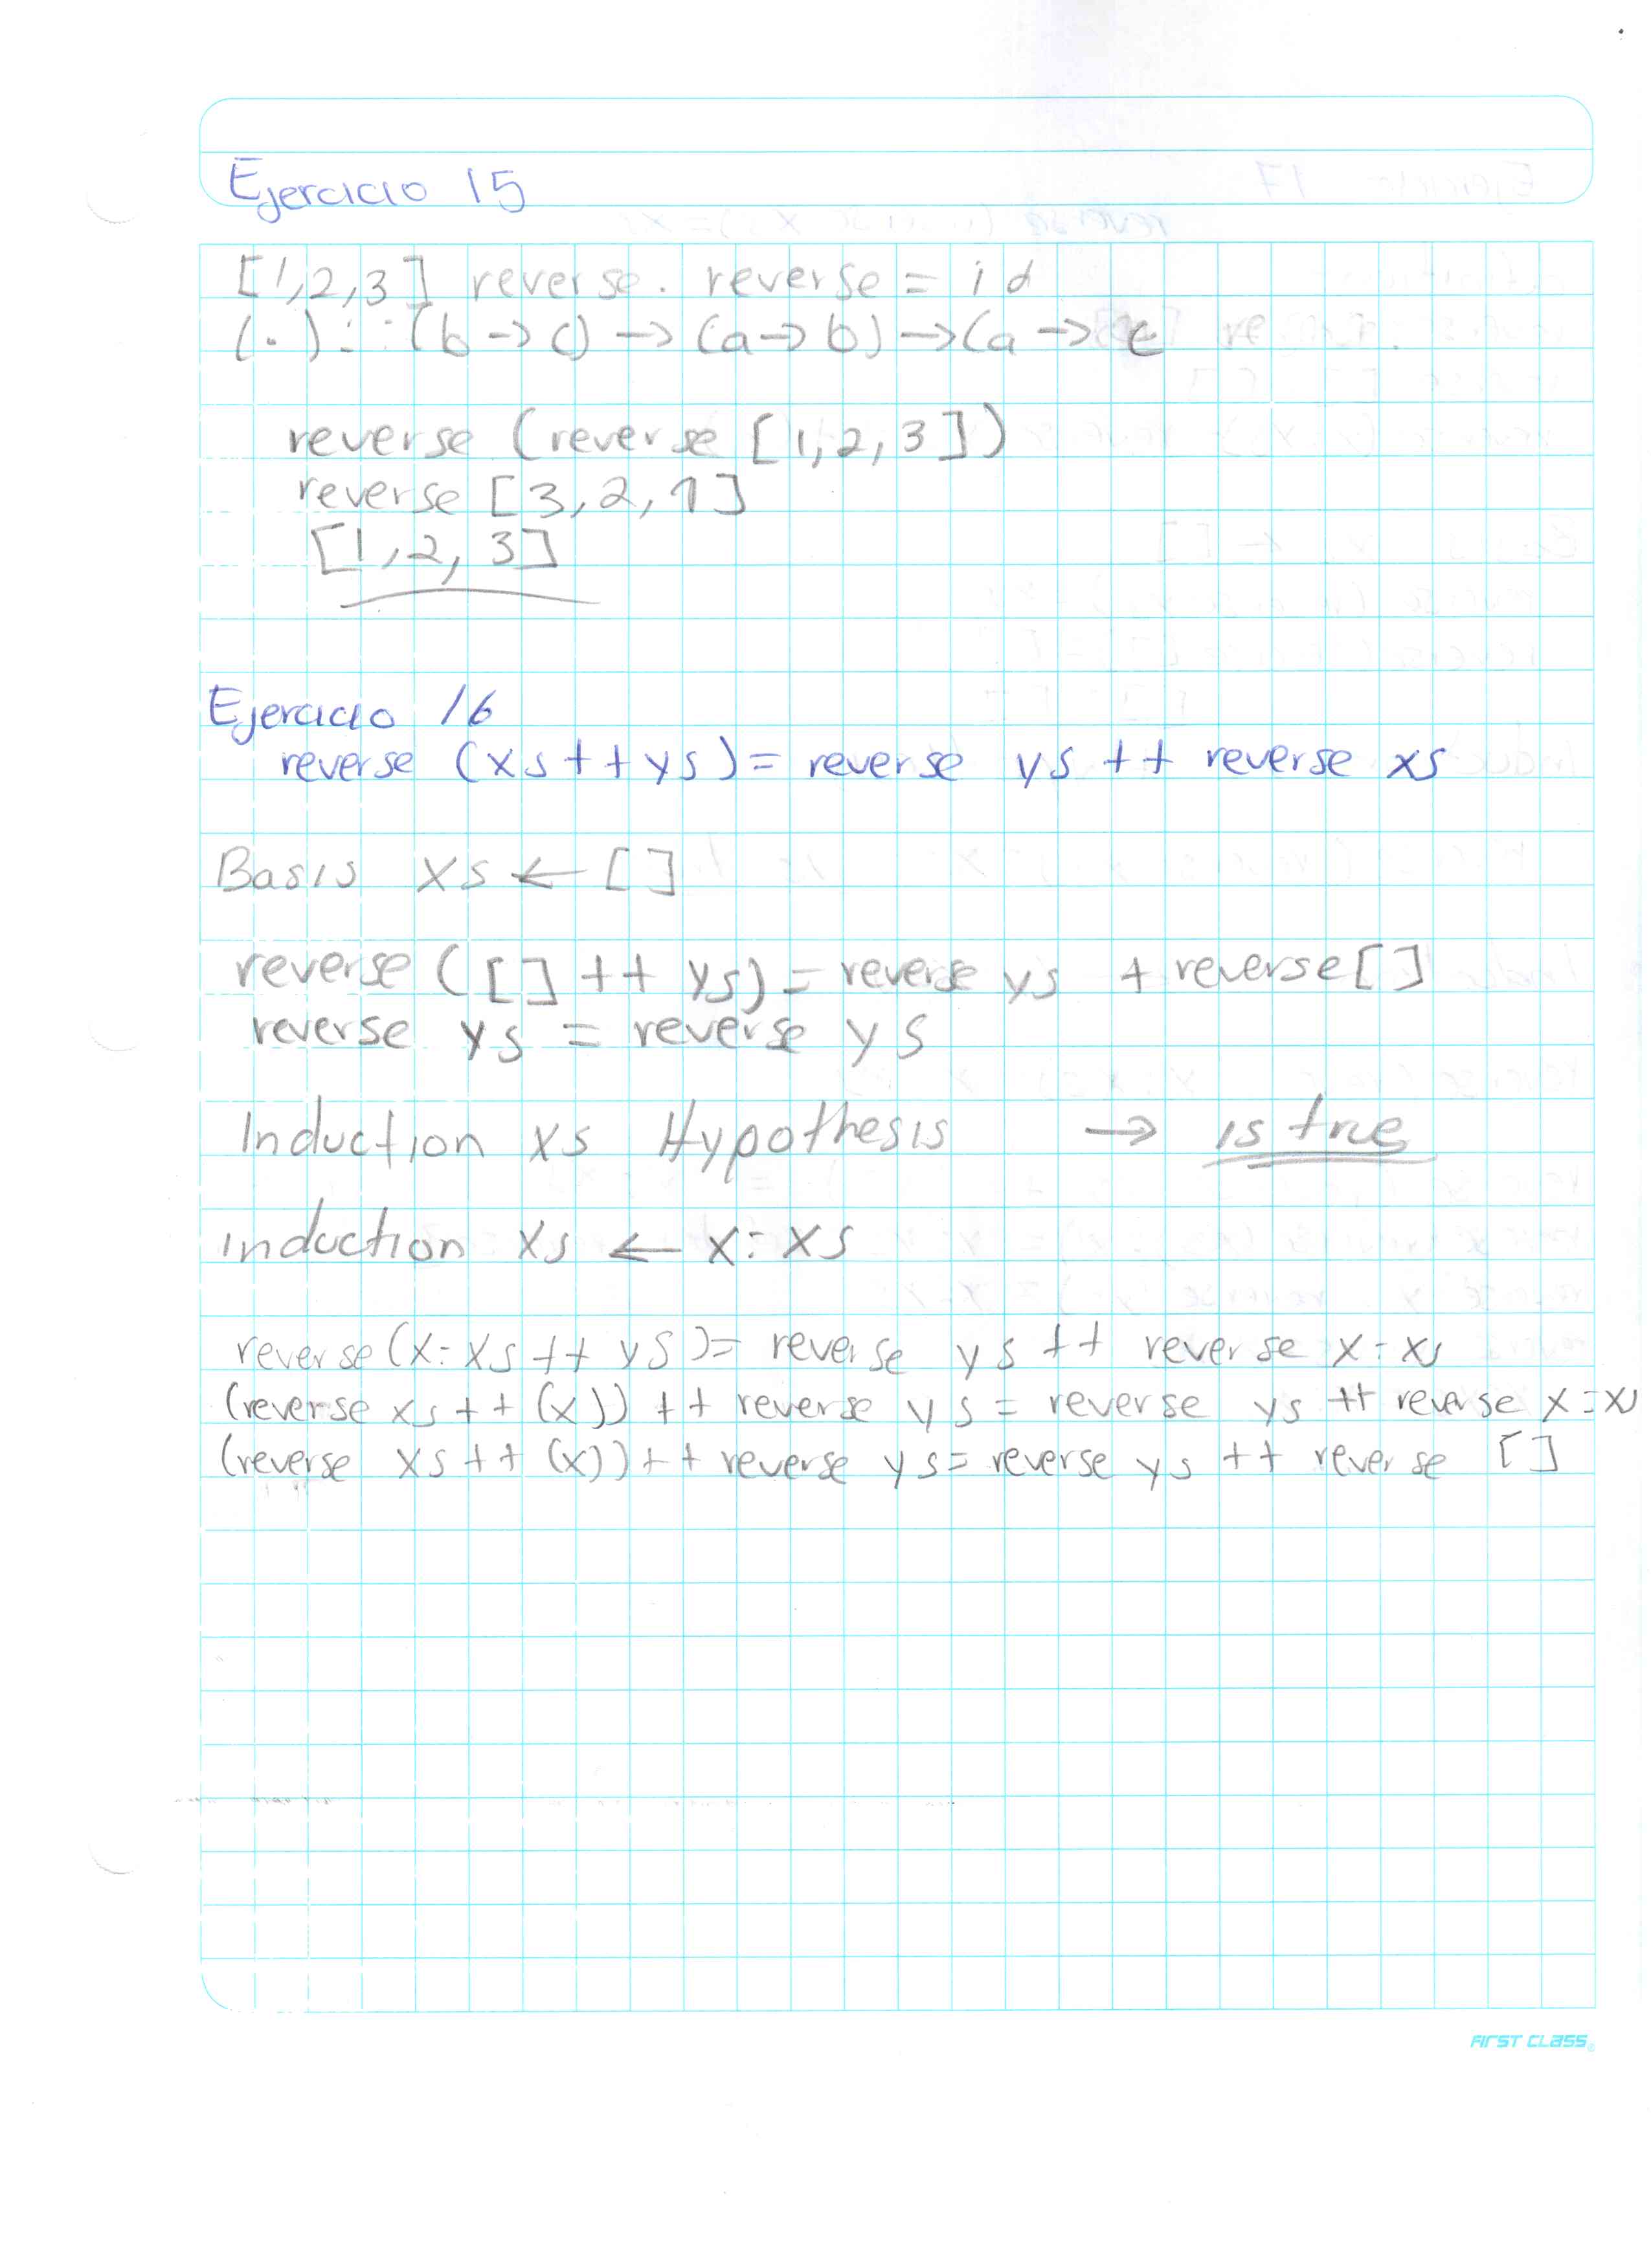 Ejercicio 15
[1,2,3] reverse . reverse = id
(.) :: (b -> c) -> (a -> b) -> (a -> c
reverse (reverse [1,2,3])
reverse [3,2,1]
[1,2,3]
Ejercicio 16
reverse (xs ++ ys) = reverse ys ++ reverse xs
Basis xs ← []
reverse ([] ++ ys) = reverse ys + reverse []
reverse ys = reverse ys
Induction xs Hypothesis → is true
induction xs ← x:xs
reverse (x:xs ++ ys) = reverse ys ++ reverse x:xs
(reverse xs ++ (x)) ++ reverse ys = reverse ys ++ reverse x:xs
(reverse xs ++ (x)) ++ reverse ys = reverse ys ++ reverse []
FIRST CLASS